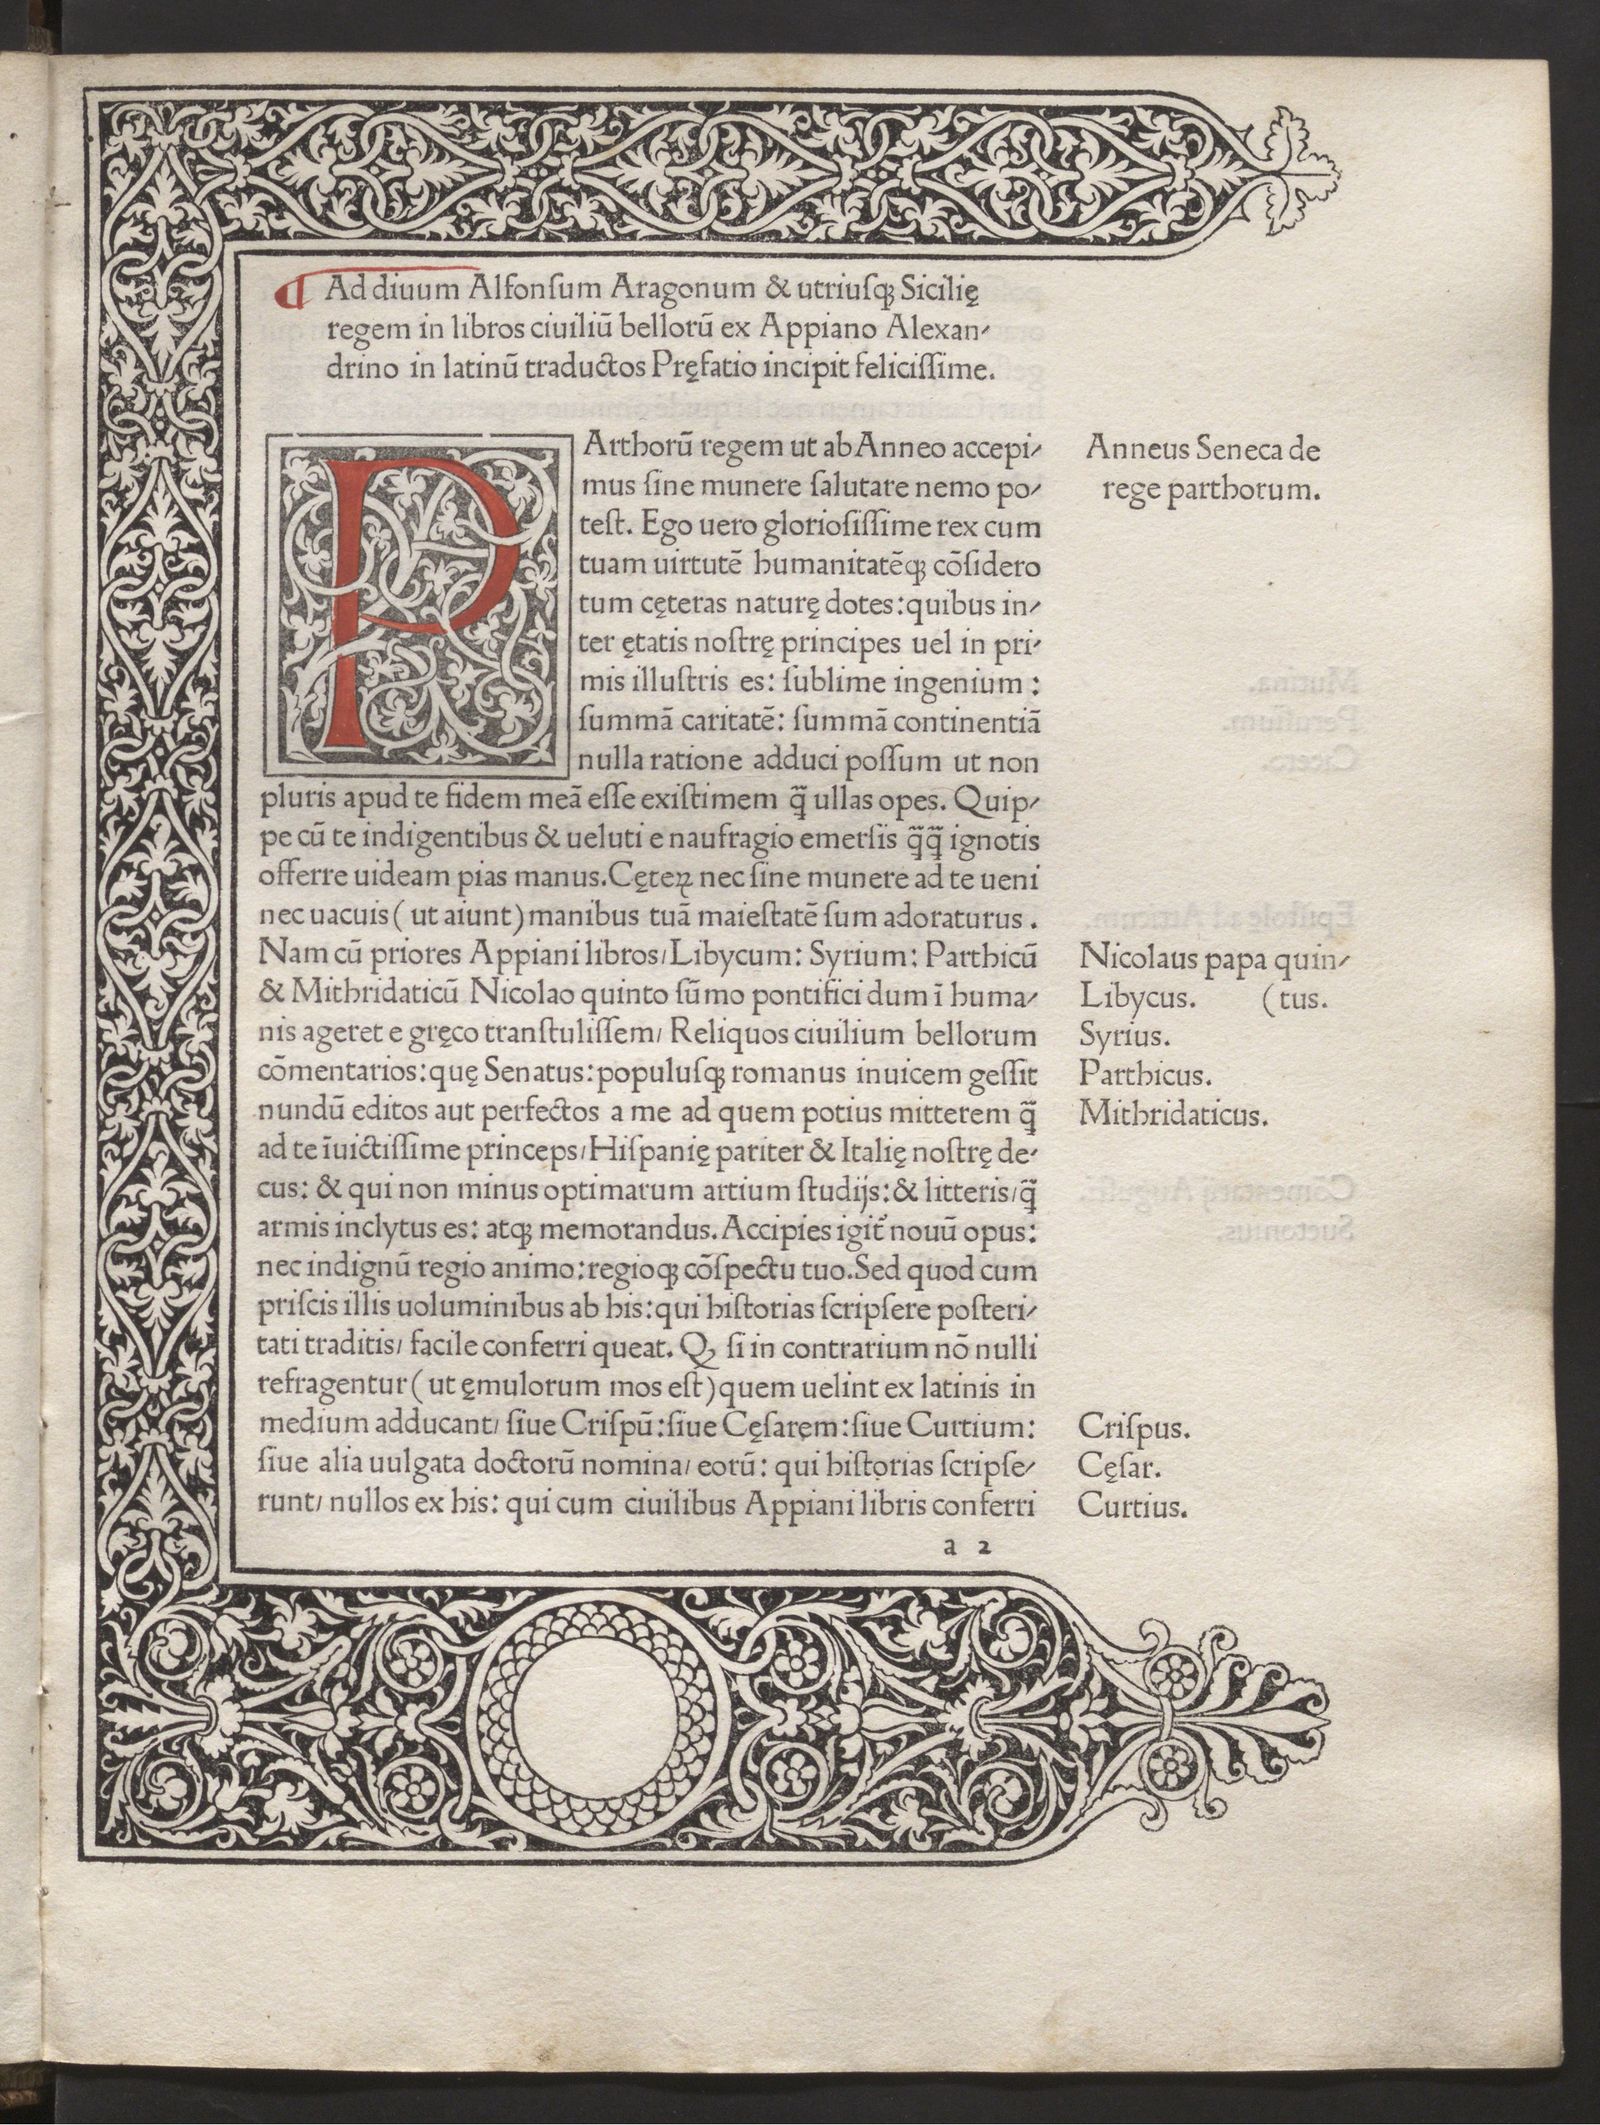 ¶ Ad diuum Alfonſum Aragonum & utriuſqꝫ Sicilię
regem in libros ciuiliū bellorū ex Appiano Alexan⸗
drino in latinū traductos Pręfatio incipit feliciſſime.
PArthorū regem ut ab Anneo accepi⸗
mus ſine munere ſalutare nemo po⸗
teſt. Ego uero glorioſiſſime rex cum
tuam uirtutē humanitatēqꝫ cōſidero
tum cęteras naturę dotes:quibus in⸗
ter ętatis noſtrę principes uel in pri⸗
mis illuſtris es: ſublime ingenium :
ſummā caritatē: ſummā continentiā
nulla ratione adduci poſſum ut non
pluris apud te fidem meā eſſe exiſtimem q̄ ullas opes. Quip⸗
pe cū te indigentibus & ueluti e naufragio emerſis q̄q̄ ignotis
offerre uideam pias manus.Cęteꝝ nec ſine munere ad te ueni
nec uacuis ( ut aiunt) manibus tuā maieſtatē ſum adoraturus .
Nam cū priores Appiani libros/Libycum: Syrium: Parthicū
& Mithridaticū Nicolao quinto ſūmo pontifici dum ī huma⸗
nis ageret e gręco tranſtuliſſem/ Reliquos ciuilium bellorum
cōmentarios:quę Senatus:populuſqꝫ romanus inuicem geſſit
nundū editos aut perfectos a me ad quem potius mitterem q̄
ad te īuictiſſime princeps/Hiſpanię pariter & Italię noſtrę de⸗
cus: & qui non minus optimarum artium ſtudijs:& litteris/q̄
armis inclytus es: atqꝫ memorandus. Accipies igit̃ nouū opus:
nec indignū regio animo:regioqꝫ cōſpectu tuo.Sed quod cum
priſcis illis uoluminibus ab his:qui hiſtorias ſcripſere poſteri⸗
tati traditis/ facile conferri queat. Qꝫ ſi in contrarium nō nulli
refragentur ( ut ęmulorum mos eſt) quem uelint ex latinis in
medium adducant/ ſiue Criſpū:ſiue Cęſarem:ſiue Curtium:
ſiue alia uulgata doctorū nomina/ eorū: qui hiſtorias ſcripſe⸗
runt/ nullos ex his: qui cum ciuilibus Appiani libris conferri
a 2
Anneus Seneca de
rege parthorum.
Nicolaus papa quin⸗
Libycus. (tus.
Syrius.
Parthicus.
Mithridaticus.
Criſpus.
Cęſar.
Curtius.